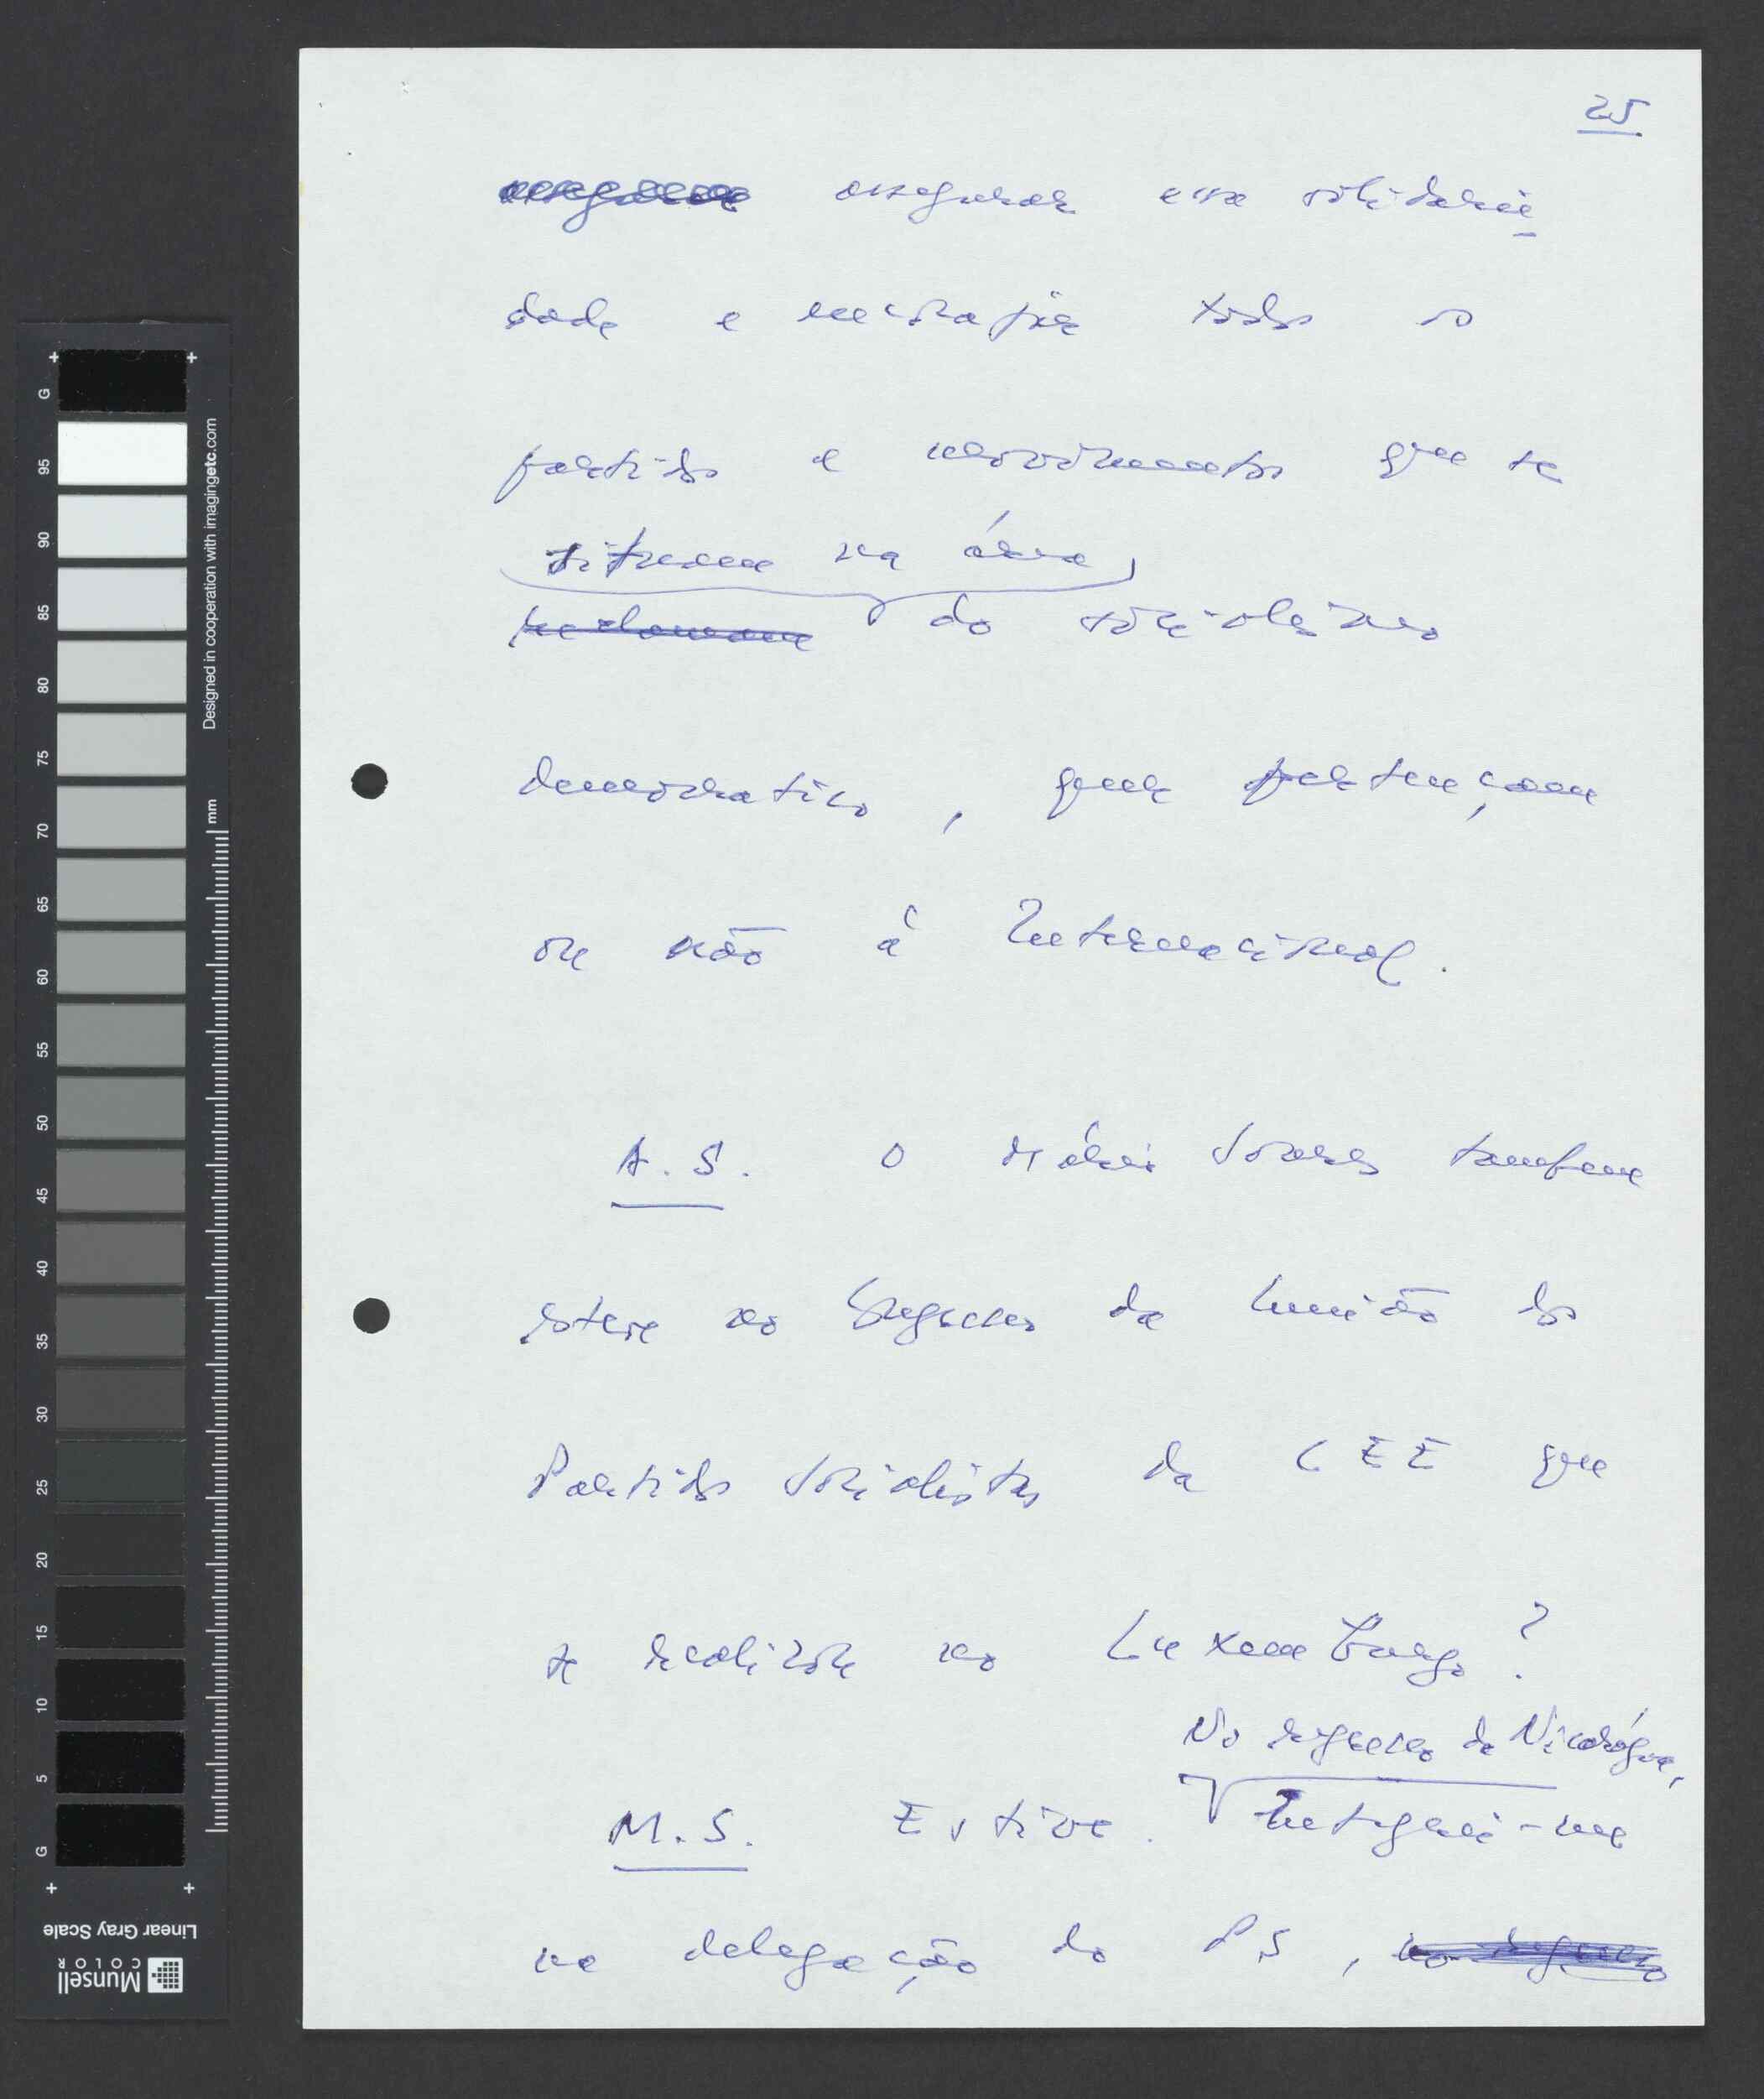 25
assegurar essa solidarie
dade e encorajar todos os
partidos e movimentos que se
situem na área
do socialismo
democratico, quer pertençam
ou não à Internacional.
A. S. O Mário Soares tambem
esteve no Congresso da União dos
Partidos Socialistas da CEE que
se realizou no Luxemburgo?
No regresso da Nicarágua,
M. S. Estive. Integrei-me
na delegação do PS, no regresso
G
95
90
85
80
75
70
65
60
55
50
45
40
35
30
25
20
15
10
5
G
Designed in cooperation with imagingetc.com
mm
Linear Gray Scale
Munsell
COLOR